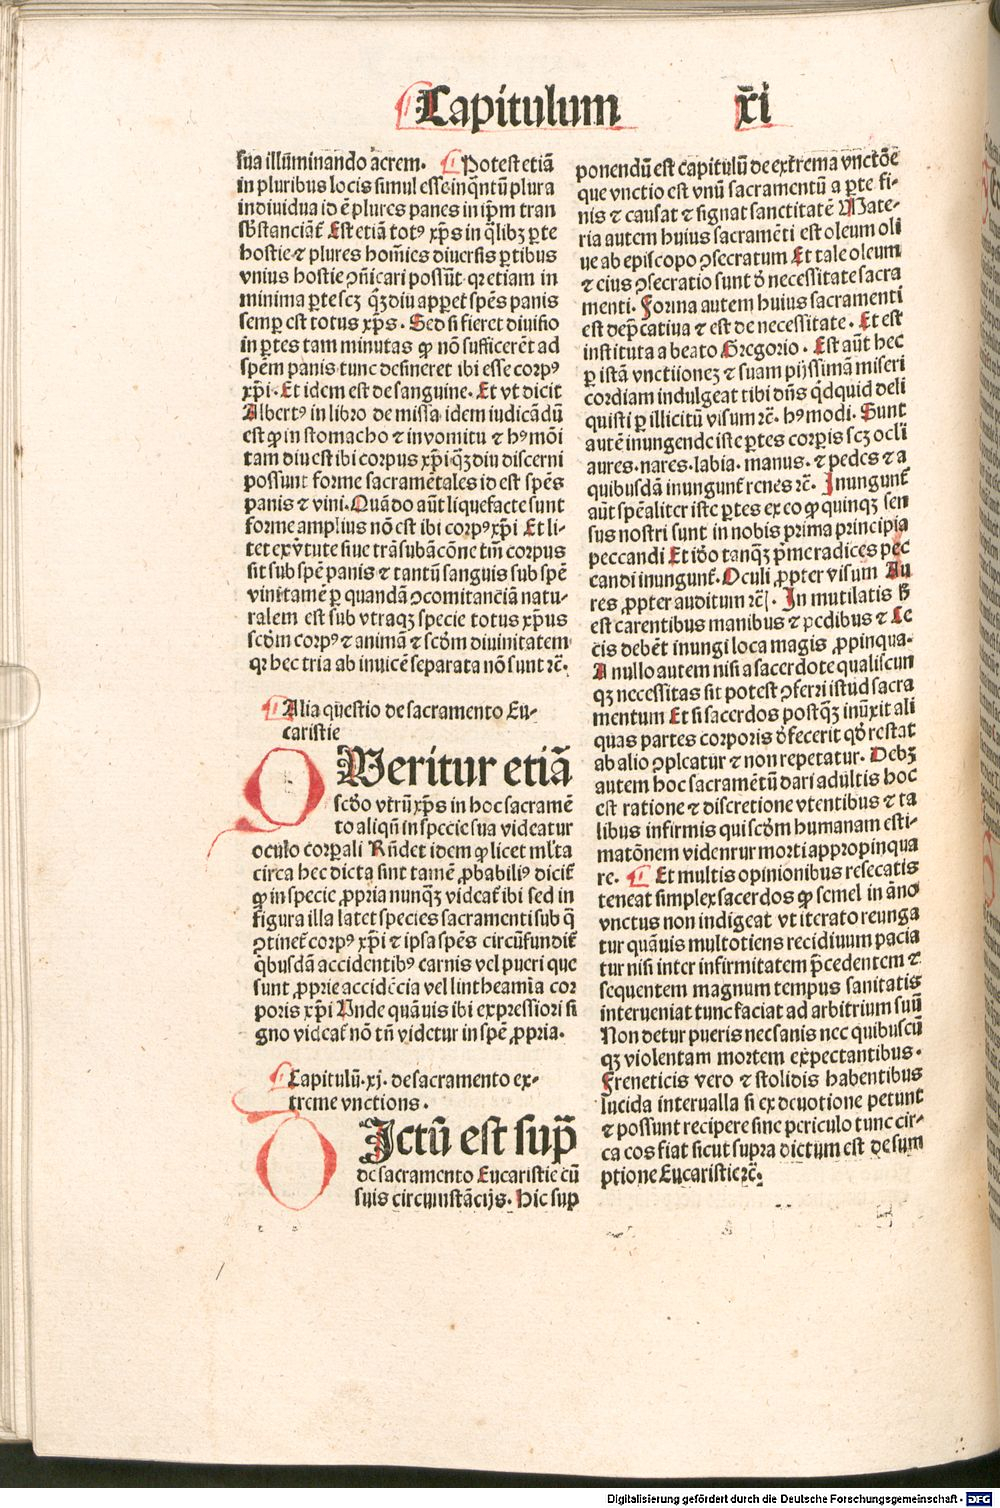 Capitulum xi
sua illūminando aerem. Potest etiā
in pluribus locis simul esse inq̄ntū plura
indiuidua id ē plures panes in ip̄m tran
sb̄stanciāt᷑ Est etiā totꝰ xp̄s in q̄libꝫ ꝑte
hostie ⁊ plures homīes diuersis ꝑtibus
vnius hostie ꝯmicari possūt· qꝛ etiam in
minima ꝑte scꝫ qꝫdiu apꝑet sp̄es panis
semꝑ est totus xp̄s. Sed si fieret diuisio
in ꝑtes tam minutas ꝙ nō sufficerēt ad
spēm panis tunc desineret ibi esse corpꝰ
xp̄i. Et idem est de sanguine. Et vt dicit
Albertꝰ in libro de missa idem iudicādū
est ꝙ in stomacho ⁊ in vomitu ⁊ hꝰmōi
tam diu est ibi corpus xp̄i qꝫdiu discerni
possunt forme sacramētales id est sp̄es
panis ⁊ vini. Quādo aūt liquefacte sunt
forme amplius nō est ibi corpꝰ xp̄i Et li-
cet ex v̄tute siue trāsubācōne tm̄ corpus
sit sub spē panis ⁊ tantū sanguis sub spē
vini tamē ꝑ quandā ꝯcomitanciā natu-
ralem est sub vtraqꝫ specie totus xp̄us
scd̄m corpꝰ ⁊ animā ⁊ scd̄m diuinitatem
qꝛ hec tria ab inuicē separata nō sunt ⁊c̄.
Alia questio de sacramento Eu-
caristie
QVeritur etiā
scd̄o vtrū xp̄s in hoc sacramē
to aliqn̄ in specie sua videatur
oculo corꝑali Rn̄det idem ꝙ licet ml̄ta
circa hec dicta sint tamē ꝓbabiliꝰ dicit᷑
ꝙ in specie ꝓpria nunqꝫ videat᷑ ibi sed in
figura illa latet species sacramenti sub q̄
ꝯtinet᷑ corpꝰ xp̄i ⁊ ipsa sp̄es circūfundit᷑
q̄busdā accidentibꝰ carnis vel pueri que
sunt ꝓprie accidēcia vel lintheamīa cor
poris xp̄i Vnde quāuis ibi expressiori si
gno videat᷑ nō tn̄ videtur in spē ꝓpria.
Capitulū.xj. de sacramento ex-
treme vnctions.
DIctū est suꝑ
de sacramento Eucaristie cū
suis circumstācijs. Hic sup
ponendū est capitulū de extrema vnctōe
que vnctio est vnū sacramentū a ꝑte fi-
nis ⁊ causat ⁊ signat sanctitatē Mate-
ria autem huius sacramēti est oleum oli
ue ab episcopo ꝯsecratum Et tale oleum
⁊ eius ꝯsecratio sunt d̄ necessitate sacra
menti. Forma autem huius sacramenti
est dep̄catiua ⁊ est de necessitate. Et est
instituta a beato Gregorio. Est aūt hec
ꝑ istā vnctiionez ⁊ suam pijssimā miseri
cordiam indulgeat tibi dn̄s q̄dquid deli
quisti ꝑ illicitū visum ⁊c̄. hꝰmodi. Sunt
autē inungende iste ꝑtes corꝑis scꝫ ocl̄i
aures. nares. labia. manus. ⁊ pedes ⁊ a
quibusdā inungunt᷑ renes ⁊c̄. Inungunt᷑
aūt spēaliter iste ꝑtes ex eo ꝙ quinqꝫ sen
sus nostri sunt in nobis prima principia
peccandi Et id̄o tanqꝫ p̄me radices pec
candi inungunt᷑. Oculi ꝓpter visum Au
res ꝓpter auditum ⁊c̄. In mutilatis ꝟ
est carentibus manibus ⁊ pedibus ⁊ Ce
cis debēt inungi loca magis ꝓpinqua.
A nullo autem nisi a sacerdote qualiscun
qꝫ necessitas sit potest ꝯferri istud sacra
mentum Et si sacerdos postqꝫ inūxit ali
quas partes corporis d̄fecerit qd̄ restat
ab alio ꝯpleatur ⁊ non repetatur. Debꝫ
autem hoc sacramētū dari adultis hoc
est ratione ⁊ discretione vtentibus ⁊ ta
libus infirmis qui scd̄m humanam esti-
matōnem videnrur morti appropinqua
re. Et multis opinionibus resecatis
teneat simplex sacerdos ꝙ semel in āno
vnctus non indigeat vt iterato reunga
tur quāuis multotiens recidiuum pacia
tur nisi inter infirmitatem p̄cedentem ⁊
sequentem magnum tempus sanitatis
interueniat tunc faciat ad arbitrium suū
Non detur pueris nec sanis nec quibuscū
qꝫ violentam mortem expectantibus.
Freneticis vero ⁊ stolidis habentibus
lucida interualla si ex deuotione petunt
⁊ possunt recipere sine periculo tunc cir-
ca eos fiat sicut supra dictum est de sum
ptione Eucaristie ⁊c̄.
Digitalisierung gefördert durch die Deutsche Forschungsgemeinschaft - DFG